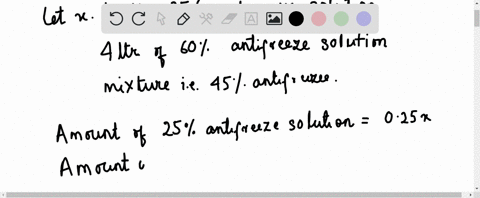 Let x
4 ltr of 60% antifreeze solution
mixture i.e. 45% antifreeze.
Amount of 25% antifreeze solution = 0.25x
Amount